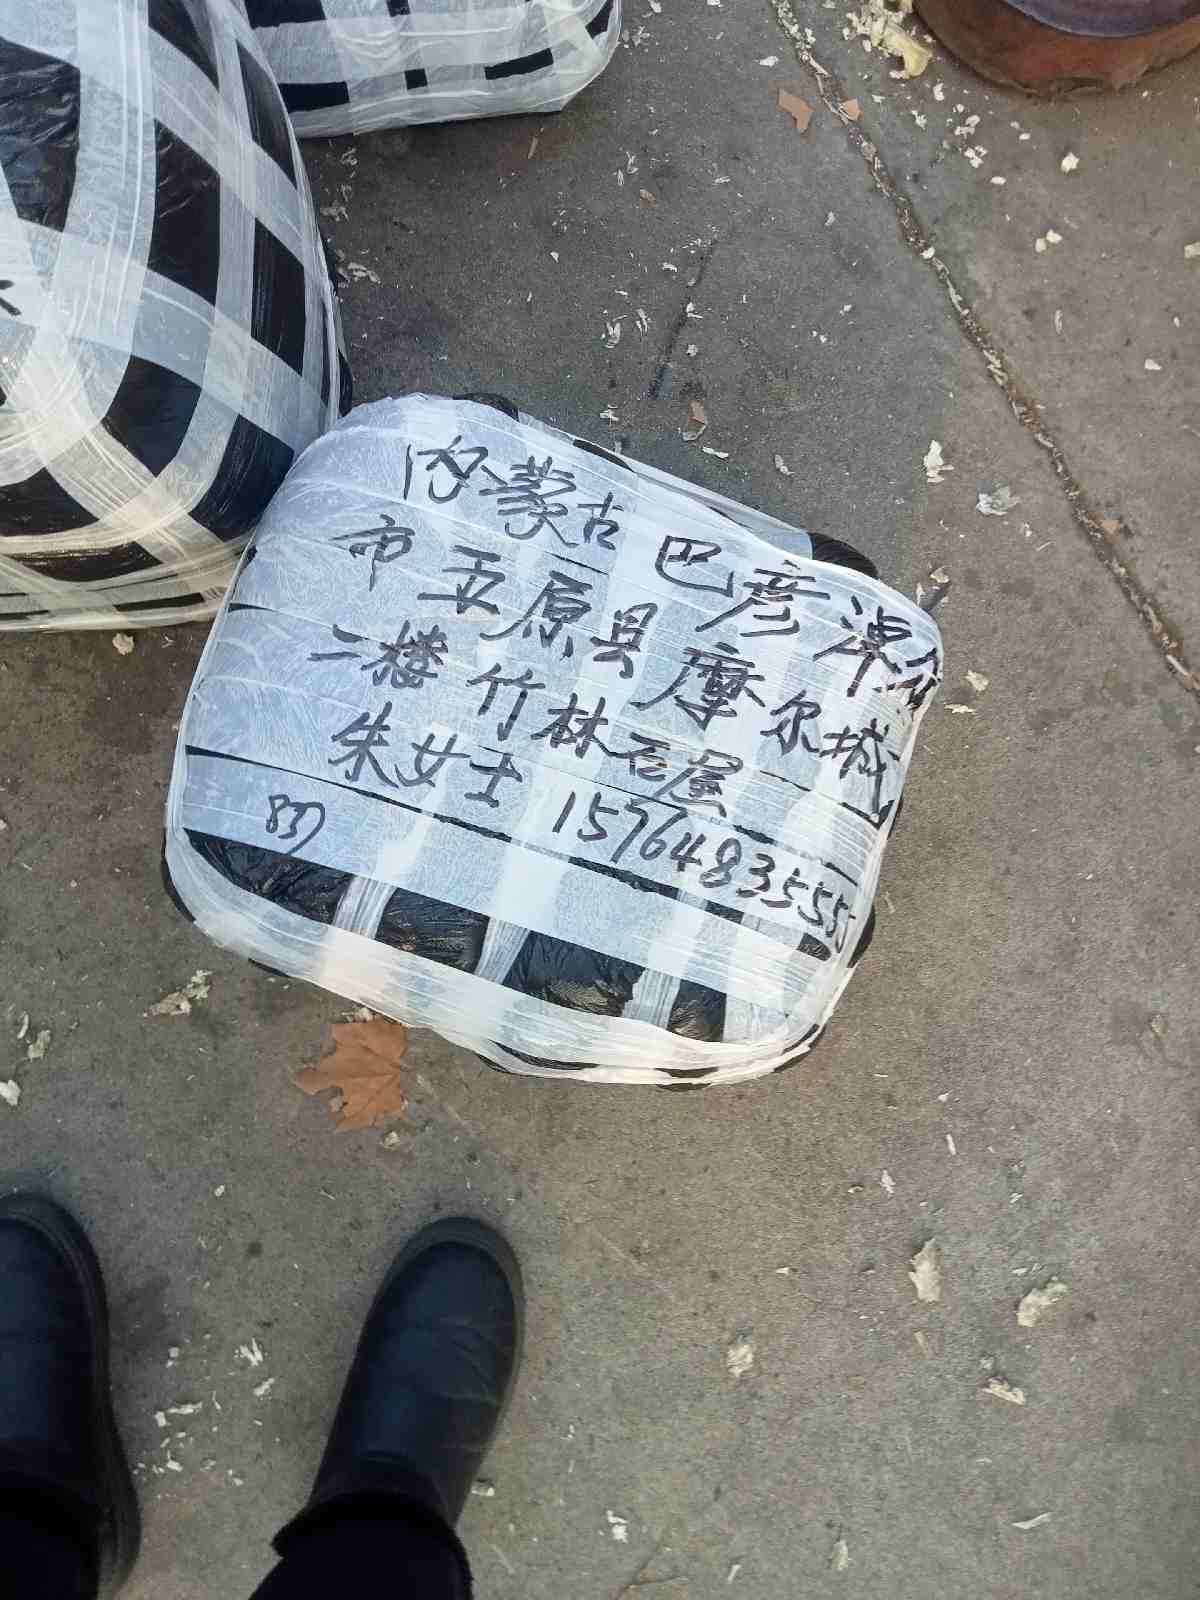 内蒙古 巴彦淖尔
市五原县摩尔城
二楼竹林石屋
朱女士 15764835555